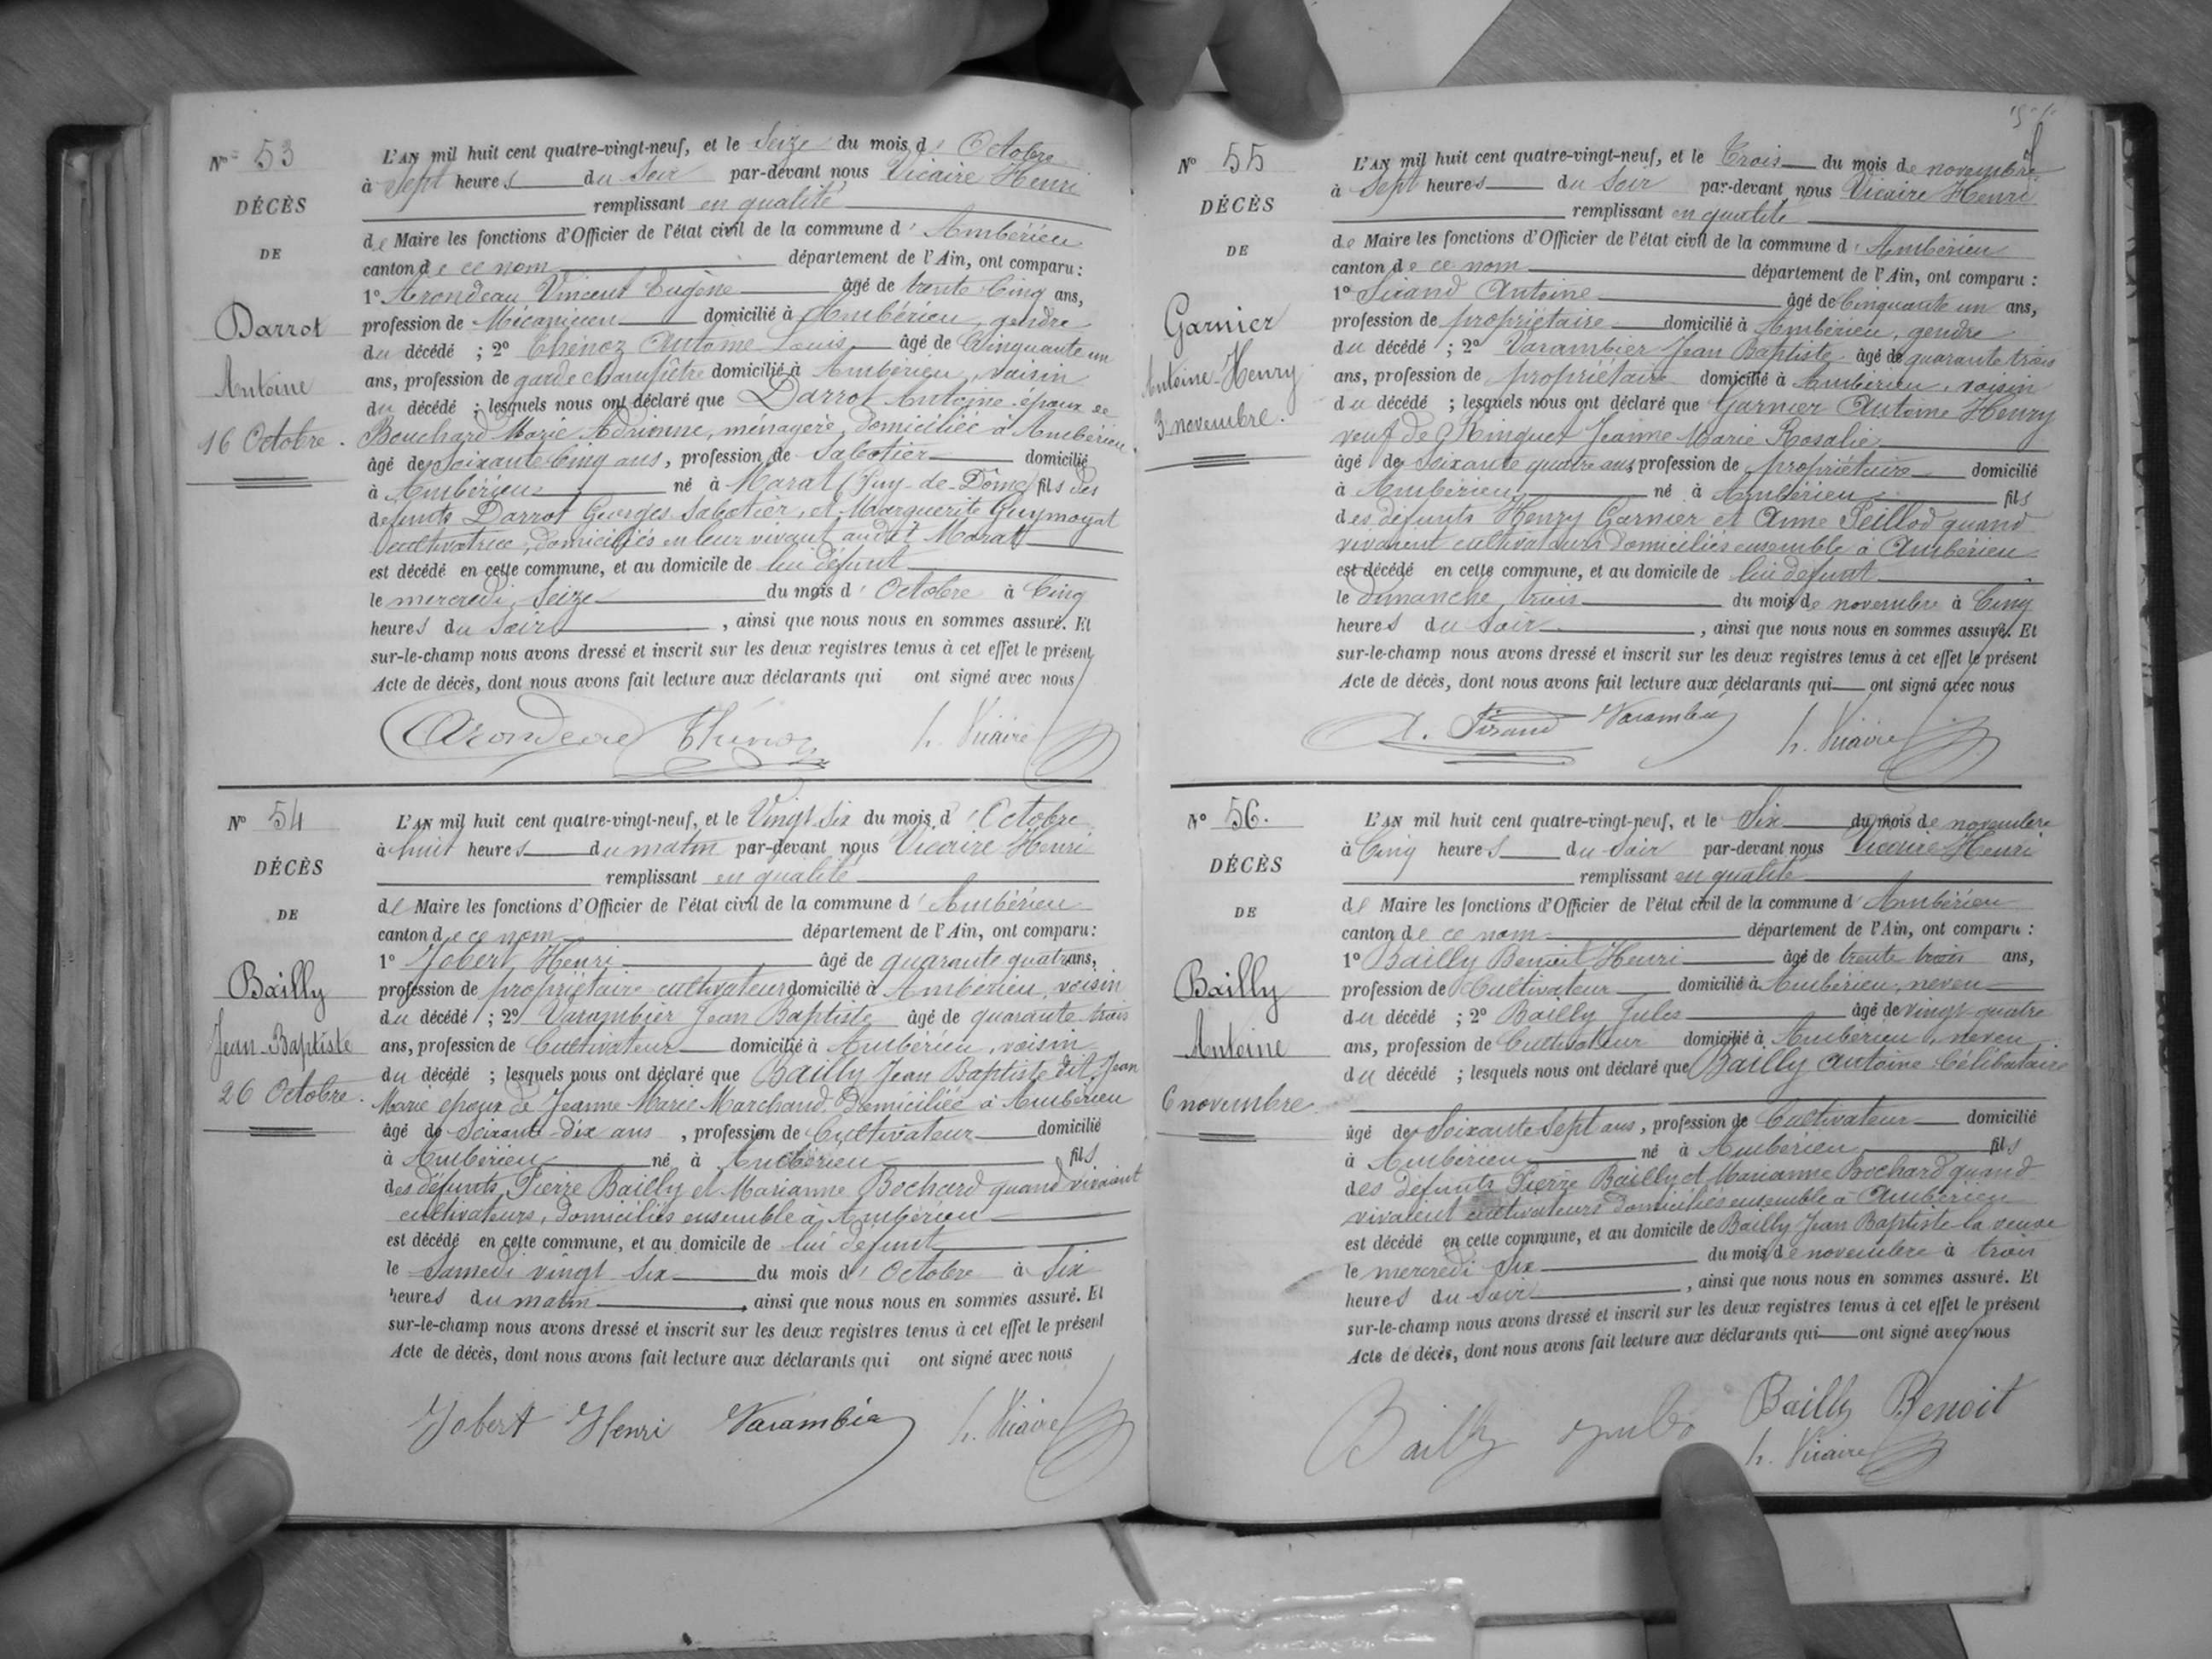 N° 53
DÉCÈS
DE
Darrot
Antoine
16 Octobre.
L'AN mil huit cent quatre-vingt-neuf, et le Seize du mois d' Octobre
à Sept heures du Soir par-devant nous Vicaire Henri
remplissant en qualité
de Maire les fonctions d'Officier de l'état civil de la commune d' Ambérieu
canton de ce nom département de l'Ain, ont comparu :
1° Arondeau Vincent Eugène âgé de trente Cinq ans,
profession de Mécanicien domicilié à Ambérieu, gendre
du décédé ; 2° Thénoz Antoine Louis âgé de Cinquante un
ans, profession de garde champêtre domicilié à Ambérieu, voisin
du décédé ; lesquels nous ont déclaré que Darrot Antoine époux de
Bouchard Marie Adrienne, ménagère, domiciliée à Ambérieu
âgé de Soixante Cinq ans, profession de Sabotier domicilié
à Ambérieu né à Marat (Puy-de-Dôme) fils des
défunts Darrot Georges Sabotier, et Marguerite Guymoyat
cultivatrice, domiciliés en leur vivant audit Marat
est décédé en cette commune, et au domicile de lui défunt
le mercredi Seize du mois d' Octobre à Cinq
heures du Soir, ainsi que nous nous en sommes assuré. Et
sur-le-champ nous avons dressé et inscrit sur les deux registres tenus à cet effet le présent
Acte de décès, dont nous avons fait lecture aux déclarants qui ont signé avec nous
Arondeau Thénoz h. Vicaire
N° 54
DÉCÈS
DE
Bailly
Jean-Baptiste
26 Octobre.
L'AN mil huit cent quatre-vingt-neuf, et le Vingt Six du mois d' Octobre
à huit heures du matin par-devant nous Vicaire Henri
remplissant en qualité
de Maire les fonctions d'Officier de l'état civil de la commune d' Ambérieu
canton de ce nom département de l'Ain, ont comparu :
1° Jobert Henri âgé de quarante quatre ans,
profession de propriétaire cultivateur domicilié à Ambérieu, voisin
du décédé ; 2° Varambier Jean Baptiste âgé de quarante trois
ans, profession de Cultivateur domicilié à Ambérieu, voisin
du décédé ; lesquels nous ont déclaré que Bailly Jean Baptiste dit Jean
Marie époux de Jeanne Marie Marchand. Domiciliée à Ambérieu
âgé de Soixante-dix ans, profession de Cultivateur domicilié
à Ambérieu né à Ambérieu fils
des défunts Pierre Bailly et Marianne Bochard quand vivaient
cultivateurs, domiciliés ensemble à Ambérieu
est décédé en cette commune, et au domicile de lui défunt
le Samedi vingt Six du mois d' Octobre à Six
heures du matin, ainsi que nous nous en sommes assuré. Et
sur-le-champ nous avons dressé et inscrit sur les deux registres tenus à cet effet le présent
Acte de décès, dont nous avons fait lecture aux déclarants qui ont signé avec nous
Jobert Henri Varambier h. Vicaire
N° 55
DÉCÈS
DE
Garnier
Antoine-Henry
3 novembre.
L'AN mil huit cent quatre-vingt-neuf, et le Trois du mois de novembre
à Sept heures du Soir par-devant nous Vicaire Henri
remplissant en qualité
de Maire les fonctions d'Officier de l'état civil de la commune d' Ambérieu
canton de ce nom département de l'Ain, ont comparu :
1° Sirand Antoine âgé de Cinquante un ans,
profession de propriétaire domicilié à Ambérieu, gendre
du décédé ; 2° Varambier Jean Baptiste âgé de quarante trois
ans, profession de propriétaire domicilié à Ambérieu, voisin
du décédé ; lesquels nous ont déclaré que Garnier Antoine Henry
veuf de Jeanne Marie Rosalie
âgé de Soixante quatre ans profession de propriétaire domicilié
à Ambérieu né à Ambérieu fils
des défunts Henry Garnier et Anne Peillod quand
vivaient cultivateurs domiciliés ensemble à Ambérieu
est décédé en cette commune, et au domicile de lui défunt
le dimanche, trois du mois de novembre à Cinq
heures du Soir, ainsi que nous nous en sommes assuré. Et
sur-le-champ nous avons dressé et inscrit sur les deux registres tenus à cet effet le présent
Acte de décès, dont nous avons fait lecture aux déclarants qui ont signé avec nous
A. Sirand Varambier h. Vicaire
N° 56.
DÉCÈS
DE
Bailly
Antoine
6 novembre
L'AN mil huit cent quatre-vingt-neuf, et le Six du mois de novembre
à Cinq heures du Soir par-devant nous Vicaire Henri
remplissant en qualité
de Maire les fonctions d'Officier de l'état civil de la commune d' Ambérieu
canton de ce nom département de l'Ain, ont comparu :
1° Bailly Benoit Henri âgé de trente trois ans,
profession de Cultivateur domicilié à Ambérieu, neveu
du décédé ; 2° Bailly Jules âgé de vingt-quatre
ans, profession de Cultivateur domicilié à Ambérieu, neveu
du décédé ; lesquels nous ont déclaré que Bailly Antoine Célibataire
âgé de Soixante Sept ans, profession de Cultivateur domicilié
à Ambérieu né à Ambérieu fils
des défunts Pierre Bailly et Marianne Bochard quand
vivaient cultivateurs domiciliés ensemble à Ambérieu
est décédé en cette commune, et au domicile de Bailly Jean Baptiste la veuve
le mercredi Six du mois de novembre à trois
heures du Soir, ainsi que nous nous en sommes assuré. Et
sur-le-champ nous avons dressé et inscrit sur les deux registres tenus à cet effet le présent
Acte de décès, dont nous avons fait lecture aux déclarants qui ont signé avec nous
Bailly Jules Bailly Benoit
h. Vicaire